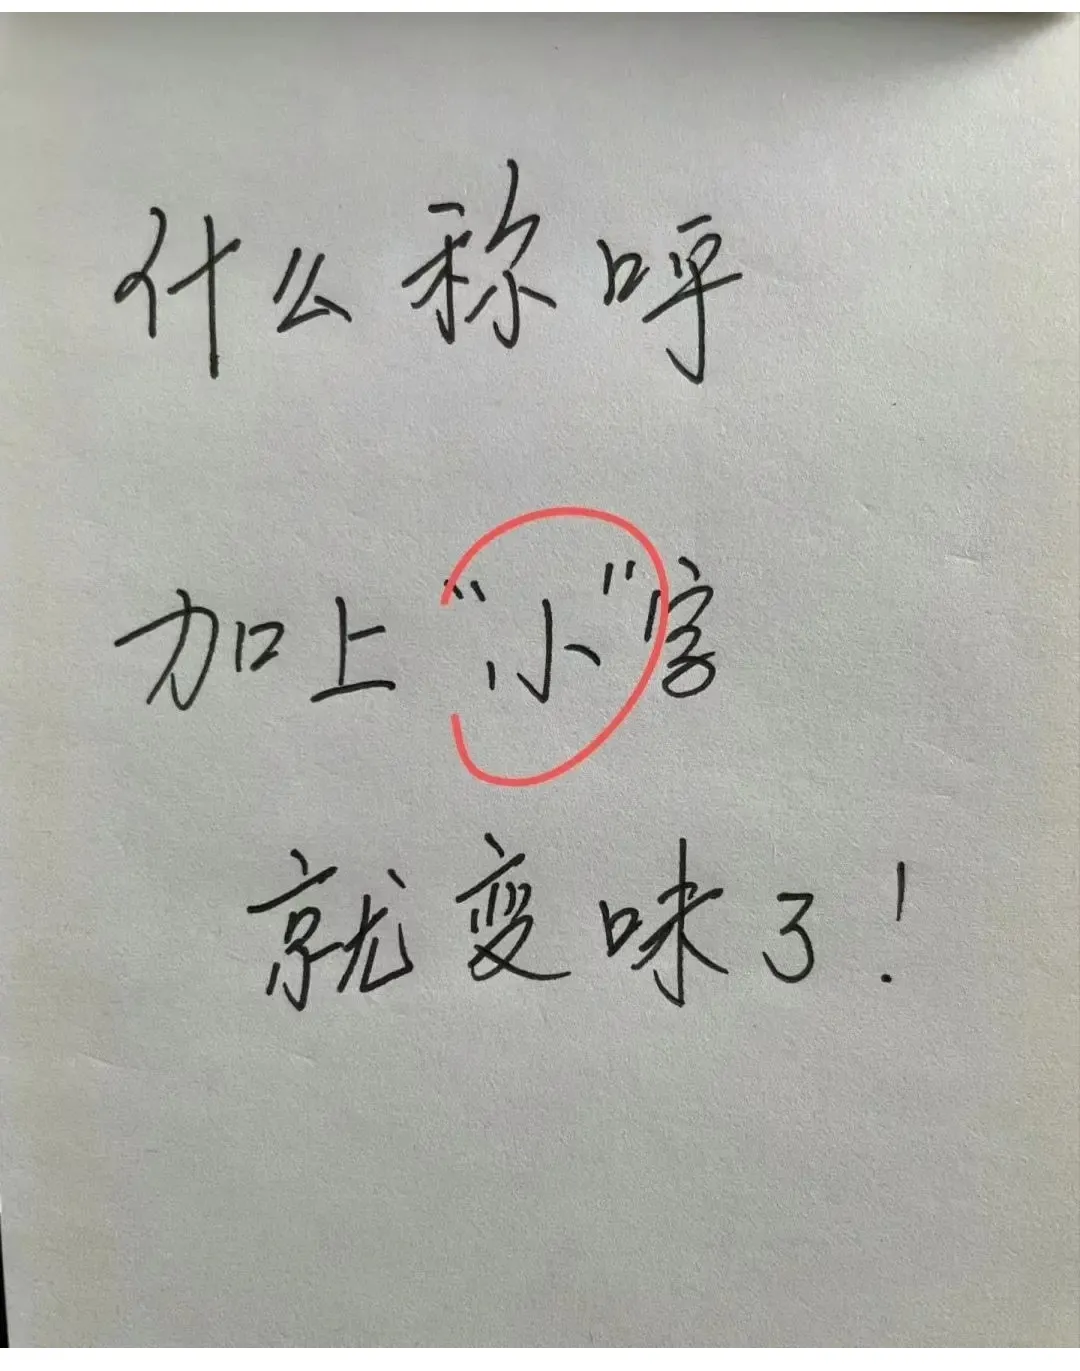 什么称呼
加上“小”字
就变味了！